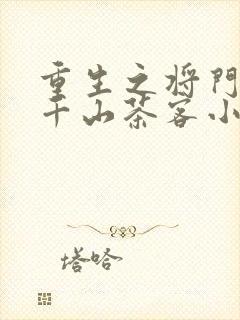 重生之将门
千山茶客小
塔哈